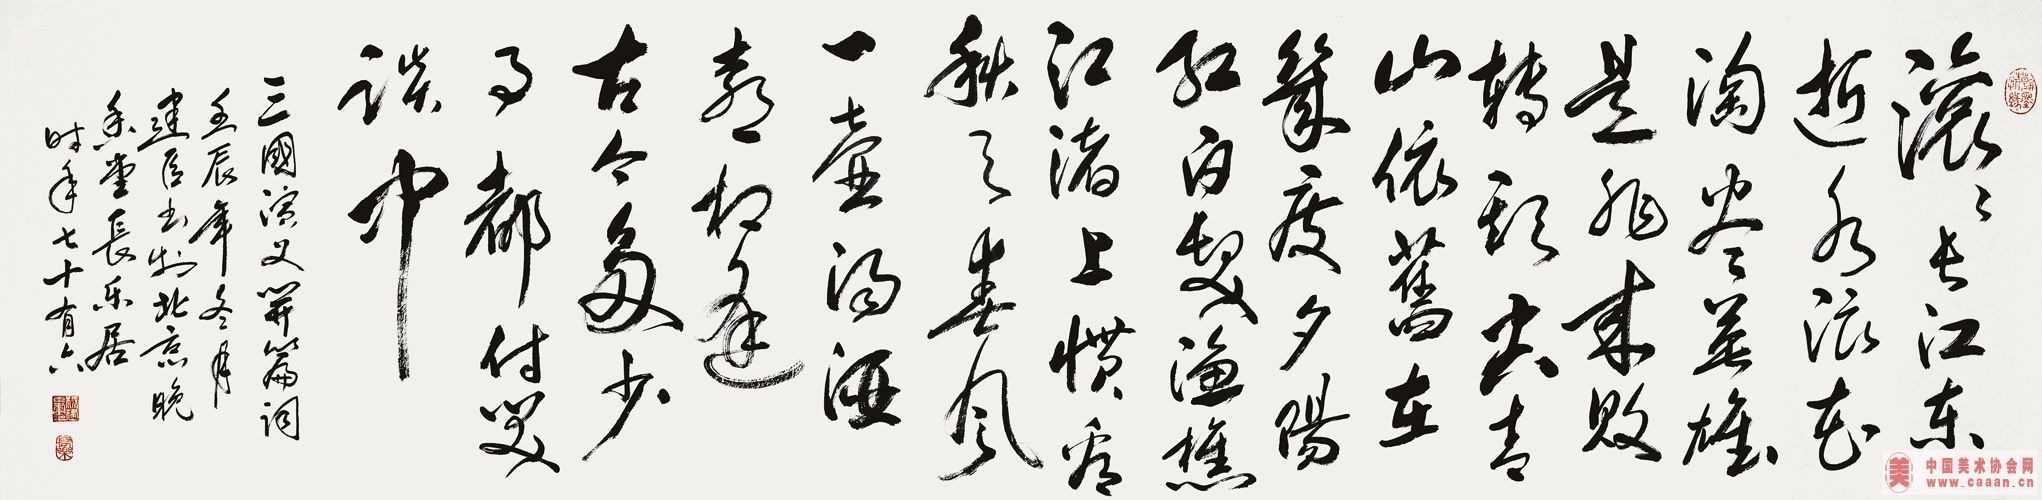 滚々长江东
逝水浪花
淘尽英雄
是非成败
转头空青
山依舊在
幾度夕陽
红白髮渔樵
江渚上惯看
秋月春风
一壶浊酒
喜相逢
古今多少
事都付笑
谈中
三國演义開篇词
壬辰年冬月
建臣书於北京晚
香堂長乐居
时年七十有六
美
中国美术协会网
www.caaan.cn